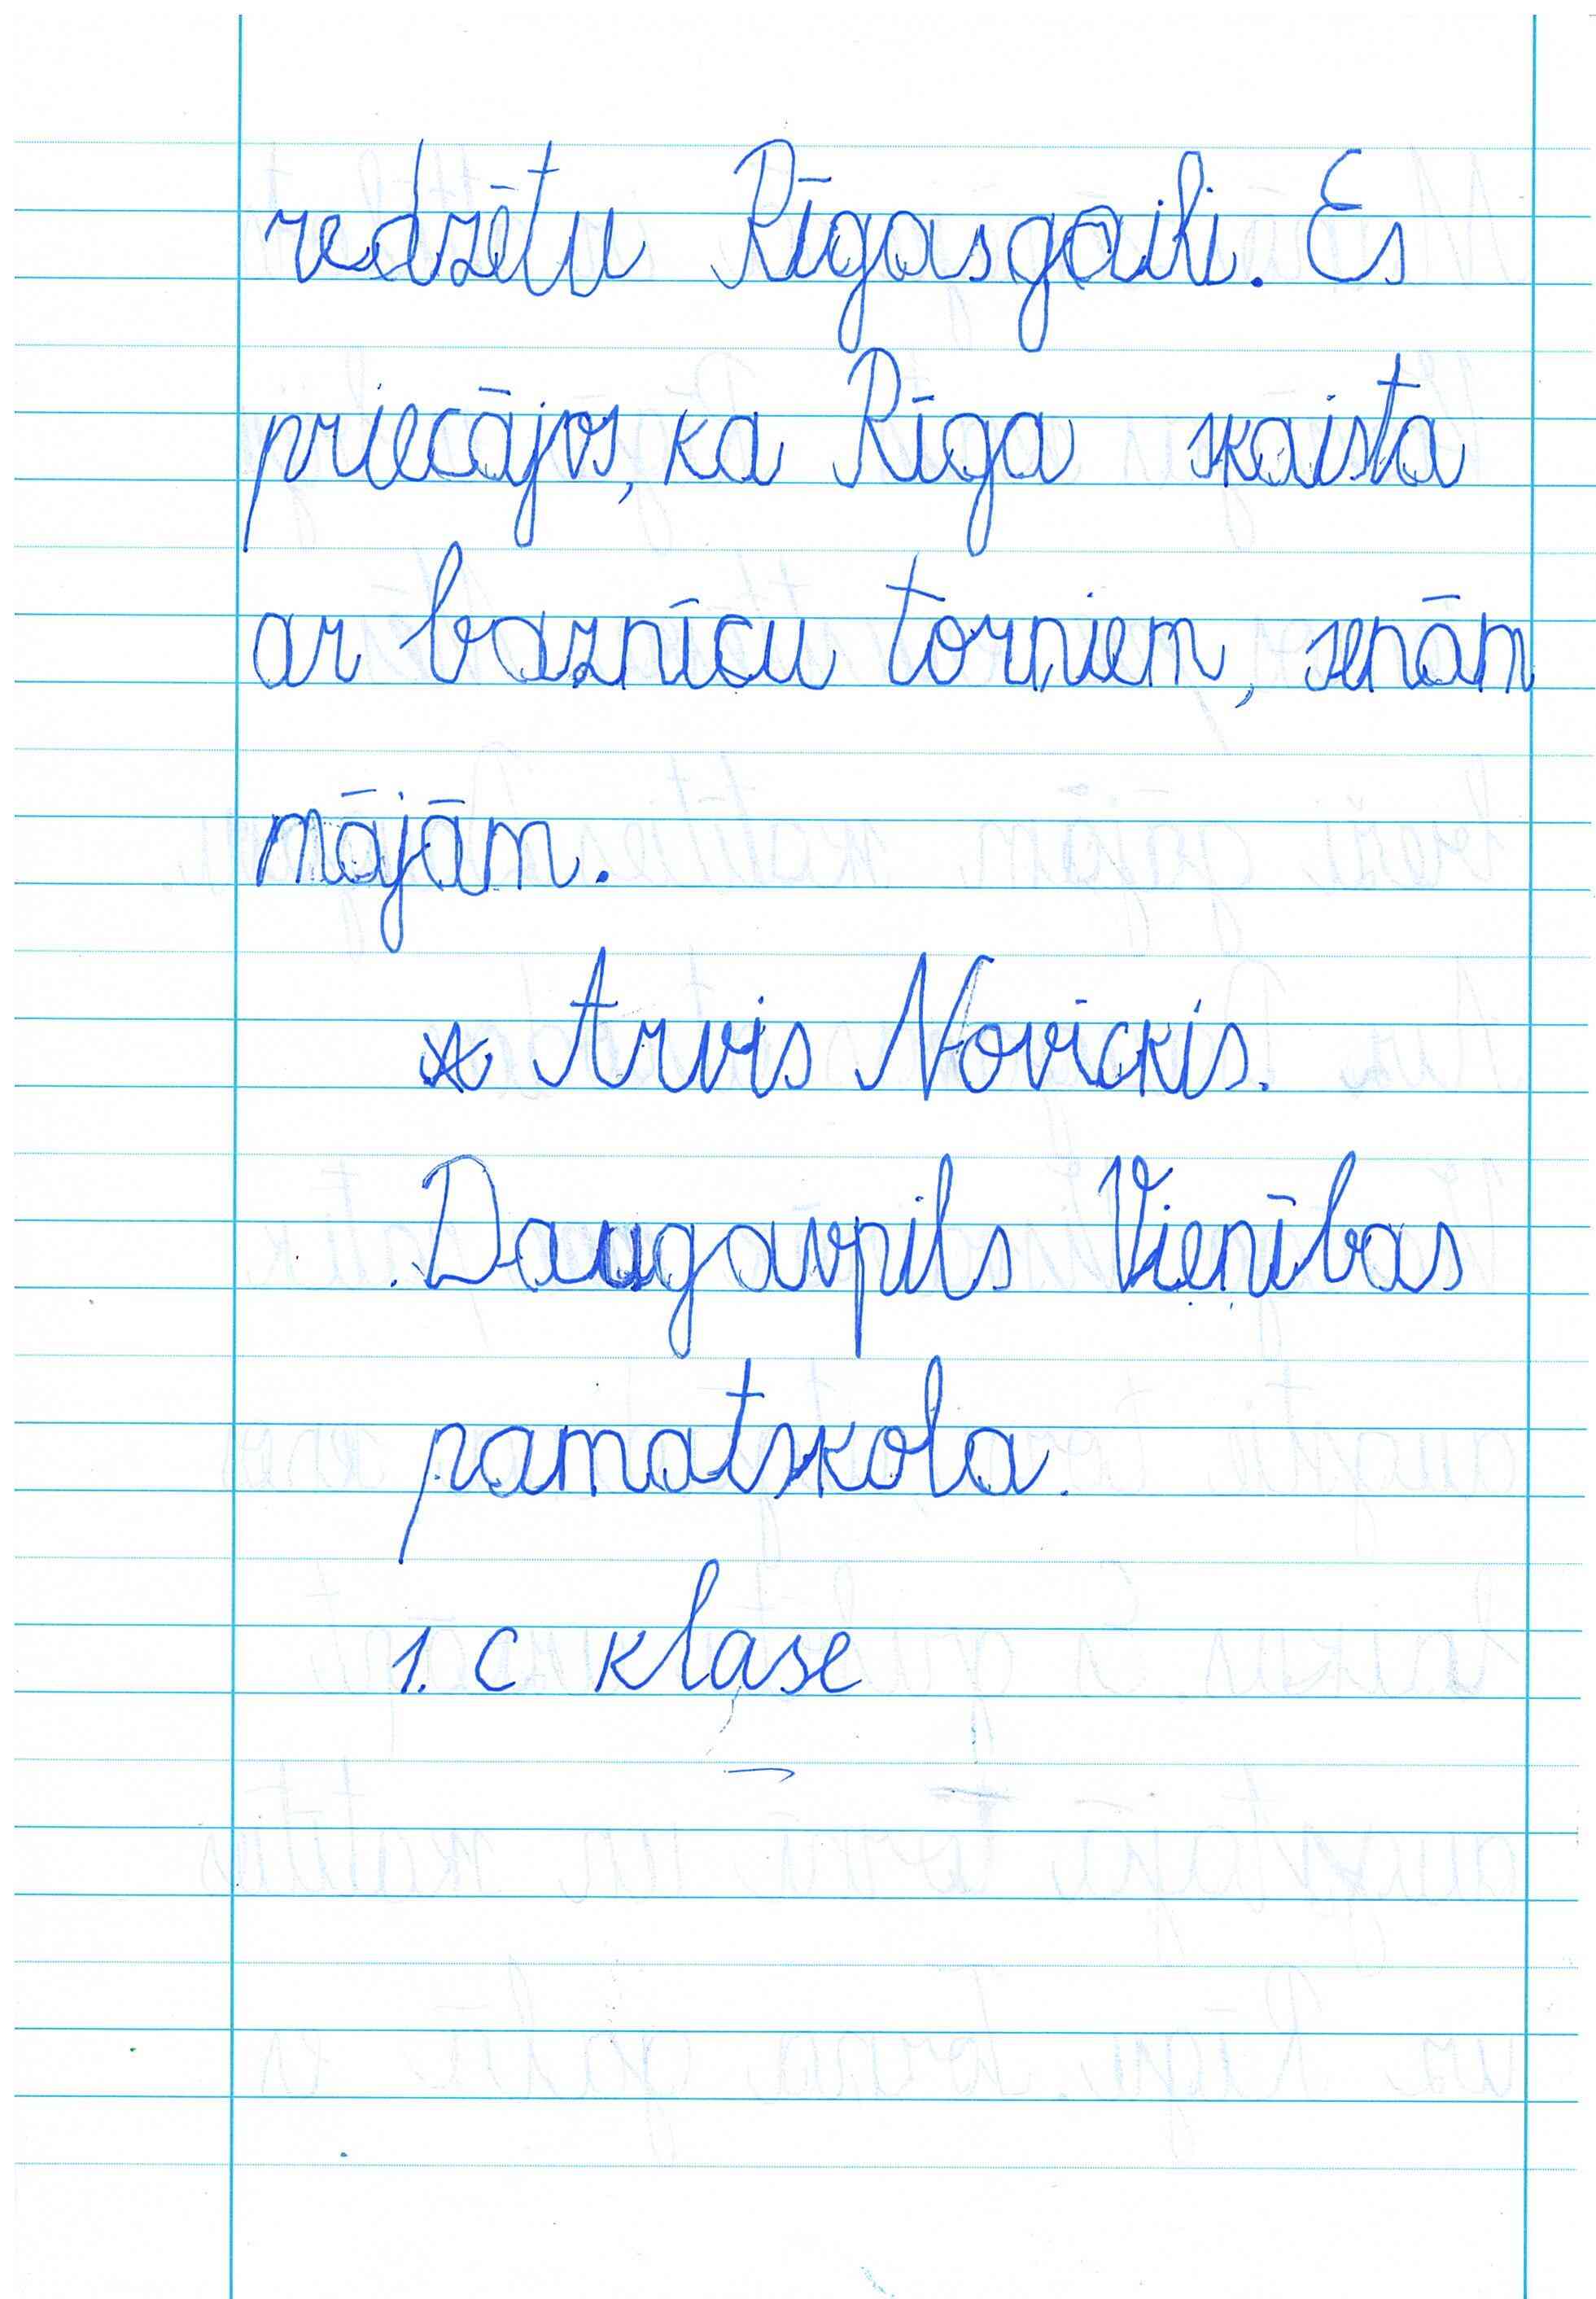 redzētu Rīgasgaili. Es
priecājos, ka Rīga skaista
ar baznīcu torņiem, senām
mājām.
Arvis Novickis.
Daugavpils Vienības
pamatskola.
1. c klase